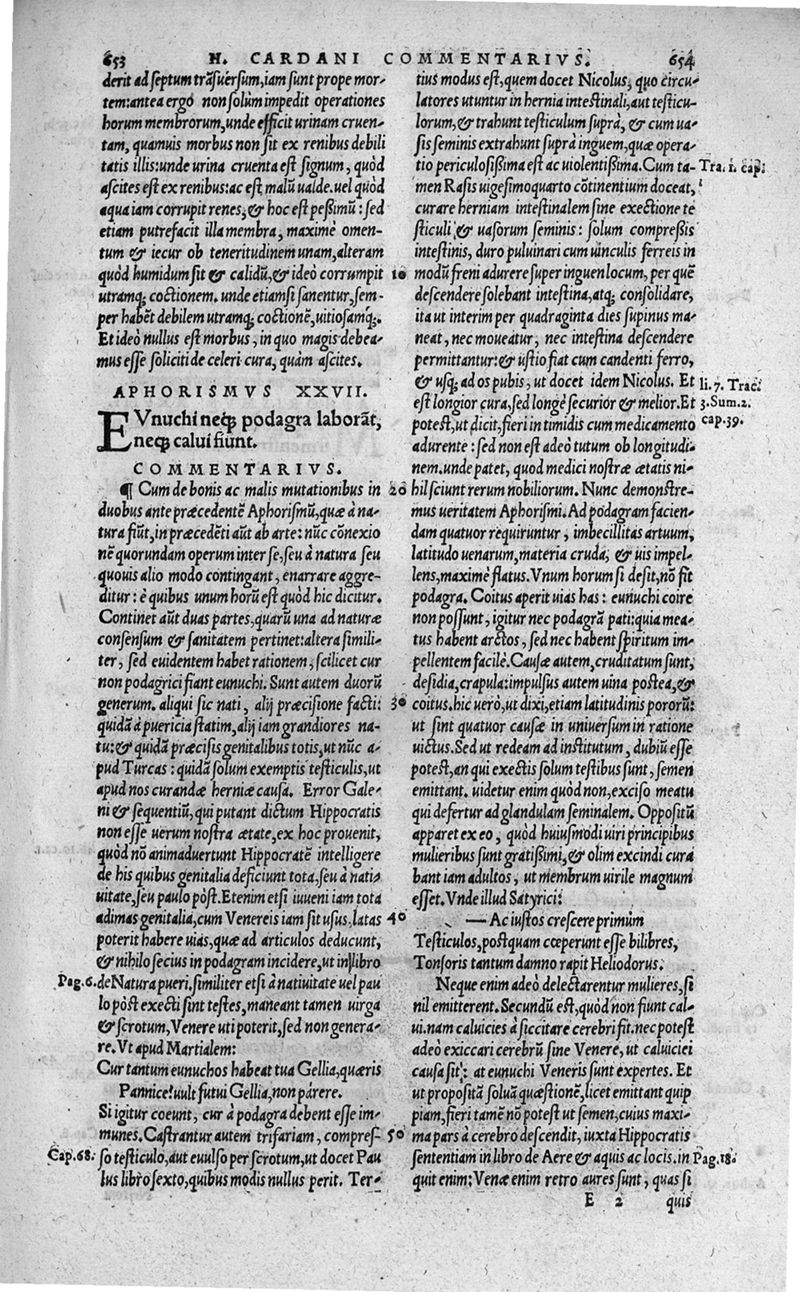 653 H. CARDANI COMMENTARIVS. 654
derit ad septum trāsuersum, iam sunt prope mor-
tem: antea ergo non solùm impedit operationes
horum membrorum, unde efficit urinam cruen-
tam, quamuis morbus non sit ex renibus debili
tatis illis: unde urina cruenta est signum, quòd
ascites est ex renibus: ac est malū ualde. uel quòd
aqua iam corrupit renes, & hoc est peßimū: sed
etiam putrefacit illa membra, maximè omen-
tum & iecur ob teneritudinem unam, alteram
quòd humidum sit & calidū, & ideò corrumpit
utramq; coctionem. unde etiamsi sanentur, sem-
per habēt debilem utramq; coctionē, uitiosamq;.
Et ideò nullus est morbus, in quo magis debea-
mus esse soliciti de celeri cura, quàm ascites.
APHORISMVS XXVII.
EVnuchi neq; podagra laborāt,
neq; calui fiunt.
COMMENTARIVS.
¶ Cum de bonis ac malis mutationibus in
duobus ante præcedentē Aphorismū, quæ à na-
tura fiūt, in præcedēti aūt ab arte: nūc cōnexio
nē quorundam operum inter se, seu à natura seu
quouis alio modo contingant, enarrare aggre-
ditur: è quibus unum horū est quòd hic dicitur.
Continet aūt duas partes, quarū una ad naturæ
consensum & sanitatem pertinet: altera simili-
ter, sed euidentem habet rationem, scilicet cur
non podagrici fiant eunuchi. Sunt autem duorū
generum. aliqui sic nati, alij præcisione facti:
quidā à pueritia statim, alij iam grandiores na-
tu: & quidā præcisis genitalibus totis, ut nūc a-
pud Turcas: quidā solum exemptis testiculis, ut
apud nos curandæ herniæ causa. Error Gale-
ni & sequentiū, qui putant dictum Hippocratis
non esse uerum nostra ætate, ex hoc prouenit,
quòd nō animaduertunt Hippocratē intelligere
de his quibus genitalia deficiunt tota, seu à nati
uitate, seu paulo pòst. Etenim etsi iuueni iam tota
adimas genitalia, cum Venereis iam sit usus, latas
poterit habere uias, quæ ad articulos deducunt,
& nihilo secius in podagram incidere, ut in libro
Pag. 6. de Natura pueri. similiter etsi à natiuitate uel pau
lo pòst execti sint testes, maneant tamen uirga
& scrotum, Venere uti poterit, sed non genera-
re. Vt apud Martialem:
Cur tantum eunuchos habeat tua Gellia, quæris
Pannice? uult futui Gellia, non párere.
Si igitur coeunt, cur à podagra debent esse im-
munes. Castrantur autem trifariam, compres-
Cap. 68. so testiculo, aut euulso per scrotum, ut docet Pau
lus libro sexto, quibus modis nullus perit. Ter-
tius modus est, quem docet Nicolus, quo circu-
latores utuntur in hernia intestinali, aut testicu-
lorum, & trahunt testiculum suprà, & cum ua-
sis seminis extrahunt suprà inguem, quæ opera-
tio periculosißima est ac uiolentißima. Cum ta- Tra. 1. cap.
men Rasis uigesimoquarto cōtinentium doceat,
curare herniam intestinalem sine exectione te
sticuli & uasorum seminis: solum compreßis
intestinis, duro puluinari cum uinculis ferreis in
10 modū freni adurere super inguen locum, per quē
descendere solebant intestina, atq; consolidare,
ita ut interim per quadraginta dies supinus ma-
neat, nec moueatur, nec intestina descendere
permittantur: & ustio fiat cum candenti ferro,
& usq; ad os pubis, ut docet idem Nicolus. Et li. 7. Trac.
est longior cura, sed longè securior & melior. Et 3. Sum. 2.
potest, ut dicit, fieri in timidis cum medicamento cap. 39.
adurente: sed non est adeò tutum ob longitudi-
nem. unde patet, quod medici nostræ ætatis ni-
20 hil sciunt rerum nobiliorum. Nunc demonstre-
mus ueritatem Aphorismi. Ad podagram facien-
dam quatuor requiruntur, imbecillitas artuum,
latitudo uenarum, materia cruda, & uis impel-
lens, maximè flatus. Vnum horum si desit, nō fit
podagra. Coitus aperit uias has: eunuchi coire
non possunt, igitur nec podagrā pati: quia mea-
tus habent arctos, sed nec habent spiritum im-
pellentem facilè. Causæ autem, cruditatum sunt,
desidia, crapula: impulsus autem uina postea, &
30 coitus. hic uerò, ut dixi, etiam latitudinis pororū:
ut sint quatuor causæ in uniuersum in ratione
uictus. Sed ut redeam ad institutum, dubiū esse
potest, an qui exectis solum testibus sunt, semen
emittant. uidetur enim quòd non, exciso meatu
qui defertur ad glandulam seminalem. Oppositū
apparet ex eo, quòd huiusmodi uiri principibus
mulieribus sunt gratißimi, & olim excindi cura
bant iam adultos, ut membrum uirile magnum
esset. Vnde illud Satyrici:
40 — Ac iustos crescere primùm
Testiculos, postquam cœperunt esse bilibres,
Tonsoris tantum damno rapit Heliodorus.
Neque enim adeò delectarentur mulieres, si
nil emitterent. Secundū est, quòd non fiunt cal-
ui. nam caluicies à siccitate cerebri fit. nec potest
adeò exiccari cerebrū sine Venere, ut caluiciei
causa sit: at eunuchi Veneris sunt expertes. Et
ut propositā soluā quæstionē, licet emittant quip
piam, fieri tamē nō potest ut semen, cuius maxi-
50 ma pars à cerebro descendit, iuxta Hippocratis
sententiam in libro de Aere & aquis ac locis. in Pag. 18.
quit enim: Venæ enim retro aures sunt, quas si
E 2 quis